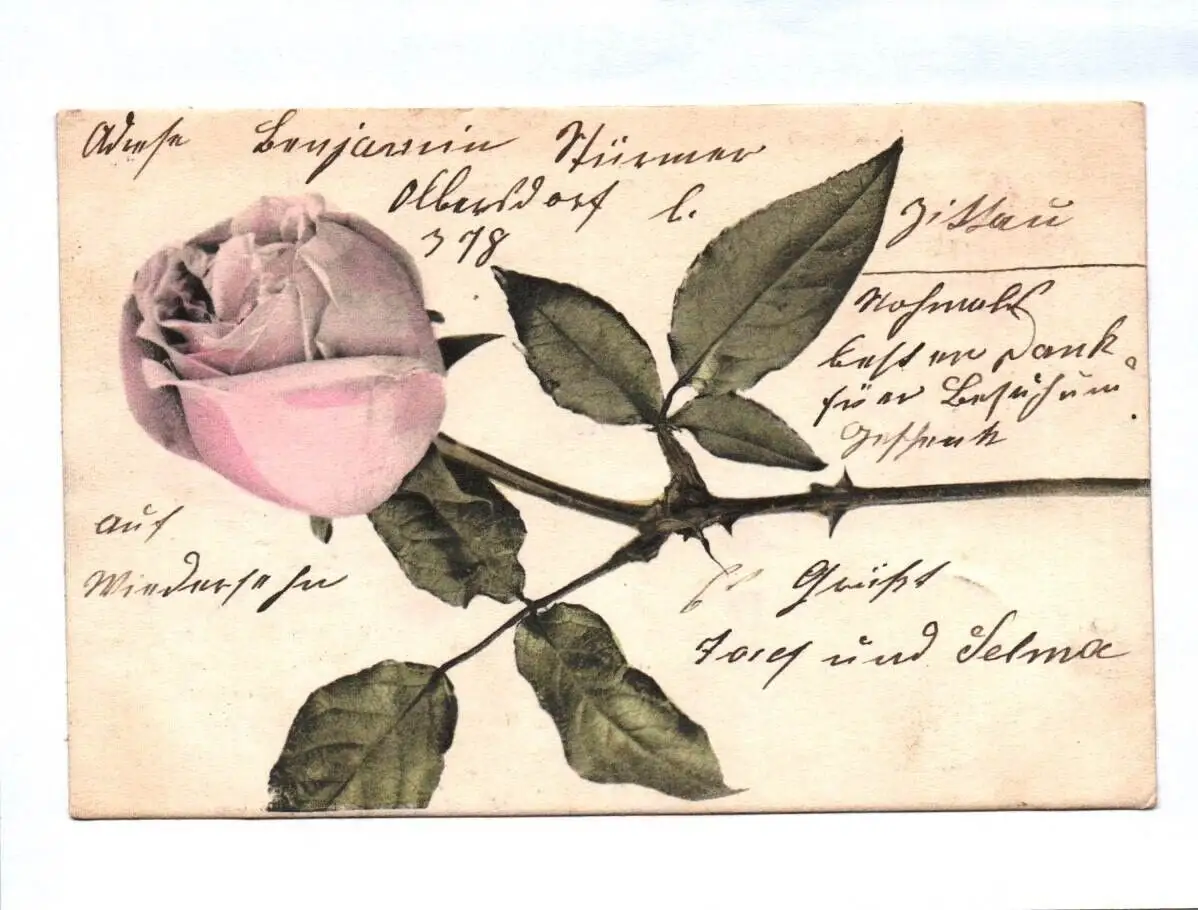 Adrese Benjamin Stürmer
Olbersdorf b. Zittau
378
Nohmals
besten Dank
für Besuch um
Geschenk
auf
Wiedersehn
Es Grüßt
Josef und Selma